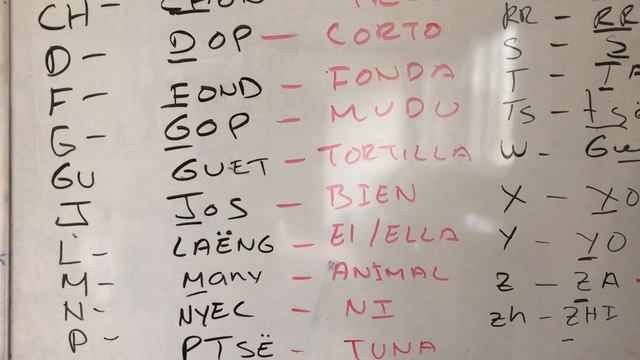 CH-
D- DOP - CORTO
F- FOND - FONDA
G- GOP - MUDU
GU GUET - TORTILLA
J JOS - BIEN
L- LAËNG - EI/ELLA
M- Many - ANIMAL
N- NYEC - NI
P- PTSË - TUNA
RR - RR
S - S
T - TA
TS - tso
W - Gu
X - XO
Y - YO
Z - ZA -
zh - ZHI